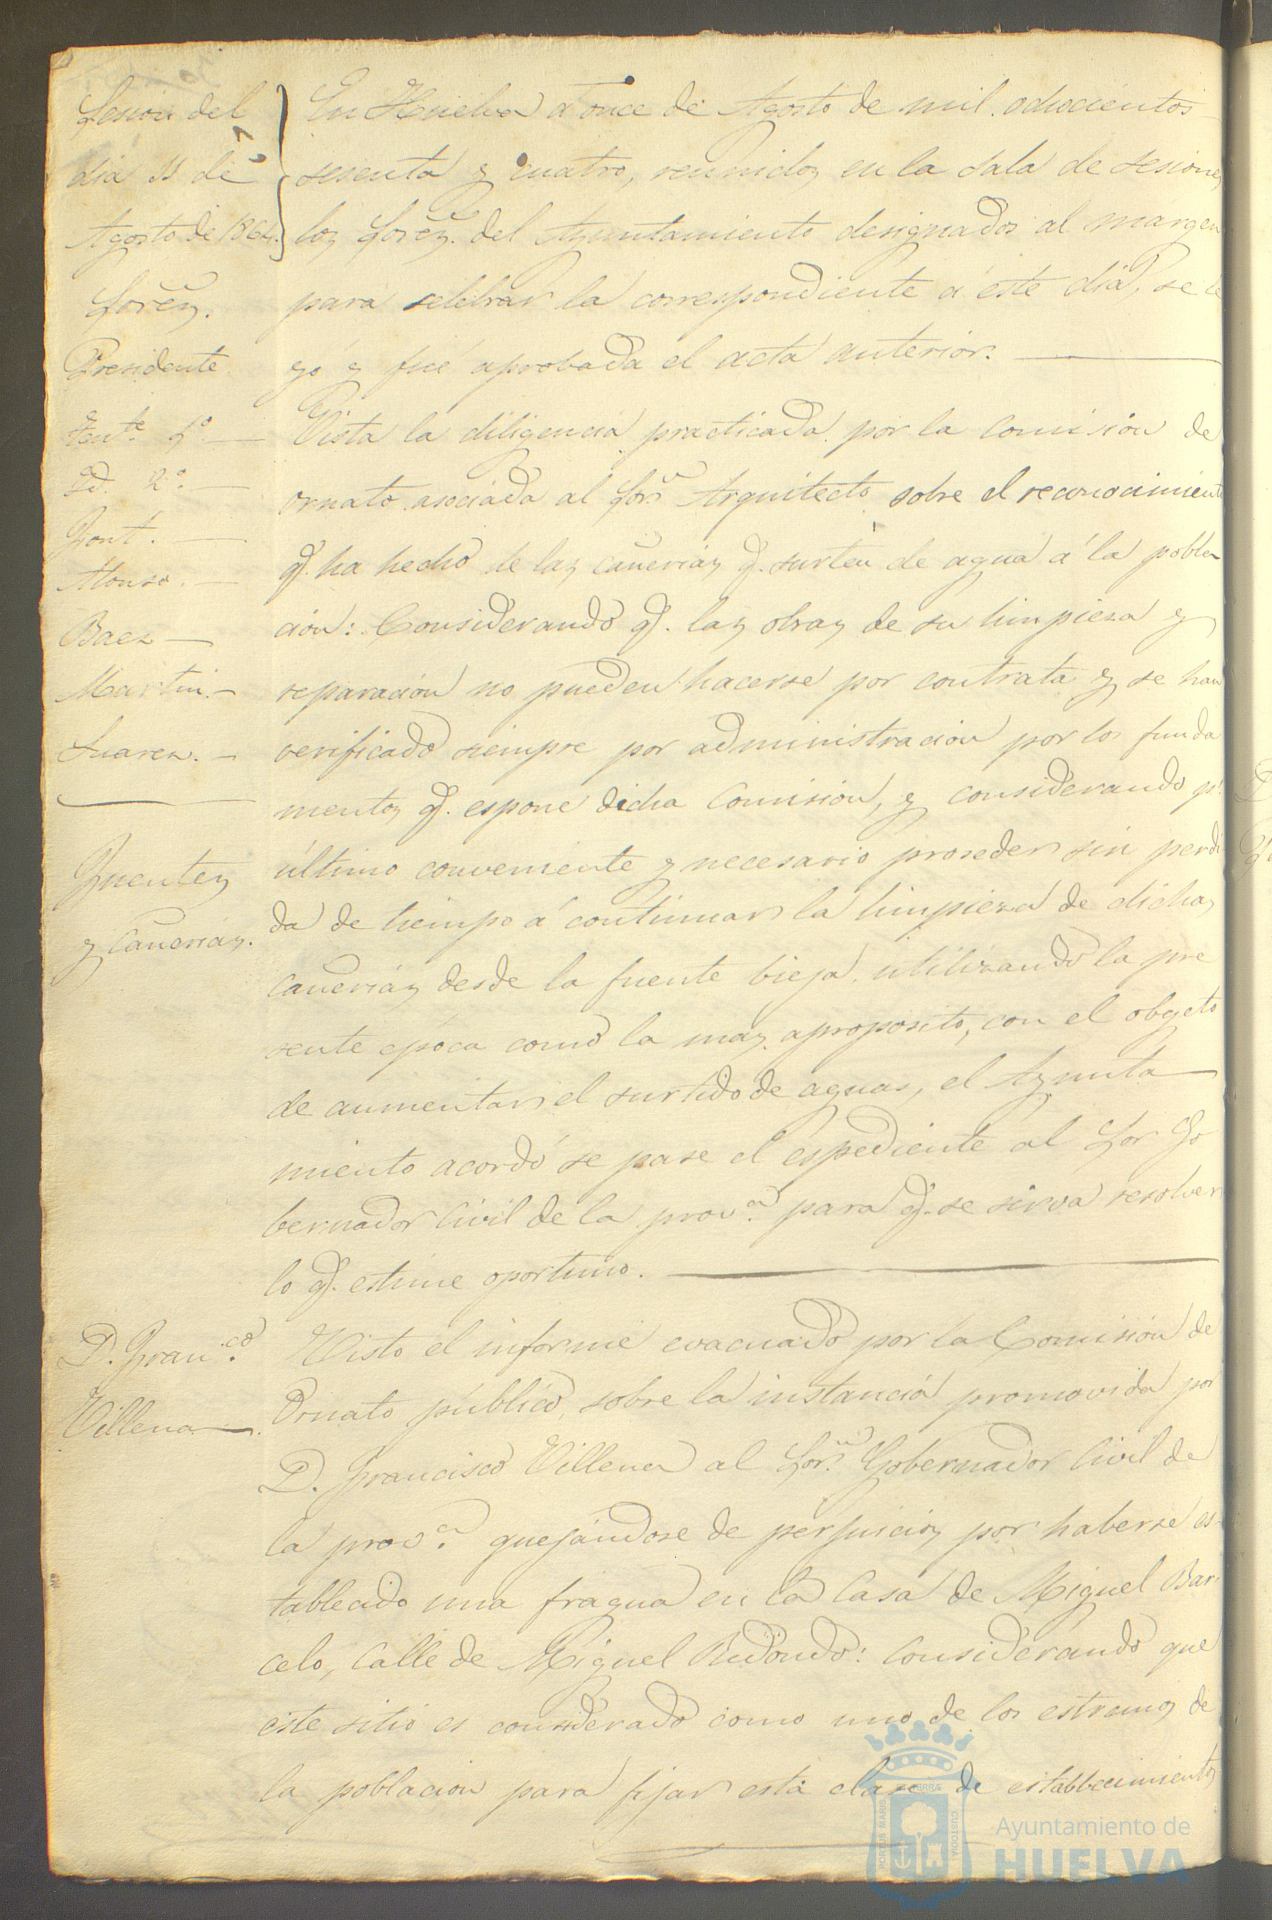 Sesion del
dia 11 de
Agosto de 1864.
Sores.
Presidente
Tente. 1º.
Id. 2º.
Font.
Alonso.
Baez
Martin.
Suarez.
En Huelva á once de Agosto de mil ochocientos
sesenta y cuatro, reunidos en la Sala de sesiones
los Sores. del Ayuntamiento designados al margen
para selebrar la correspondiente á este dia, se le
yó y fué aprobada el acta anterior.
Fuentes
y cañerías.
Vista la diligencia practicada por la Comision de
ornato asociada al Sor. Arquitecto sobre el reconocimiento
q. ha hecho de las cañerias q. surten de agua á la pobla
cion: Considerando q. las obras de su limpieza y
reparacion no pueden hacerse por contrata y se han
verificado siempre por administracion por los funda
mentos q. espone dicha Comision, y considerando pr.
último conveniente y necesario proseder sin perdi
da de tiempo á continuar la limpieza de dichas
cañerias desde la fuente bieja utilizando la pre
sente época como la mas aproposito, con el obgeto
de aumentar el surtido de aguas, el Ayunta
miento acordó se pase el espediente al Sor Go
bernador Civil de la prova. para q. se sirva resolver
lo q. estime oportuno.
D. Franco.
Villena
Visto el informe evacuado por la Comision de
Ornato público, sobre la instancia promovida por
D. Francisco Villena al Sor. Gobernador Civil de
la prova. quejándose de perjuicios por haberse es
tablecido una fragua en la Casa de Miguel Bar
celo, Calle de Miguel Redondo: Considerando que
este sitio es considerado como uno de los estremos de
la poblacion para fijar esta clase de establecimientos
PORTUS MARIS ET TERRAE CUSTODIA
Ayuntamiento de
HUELVA